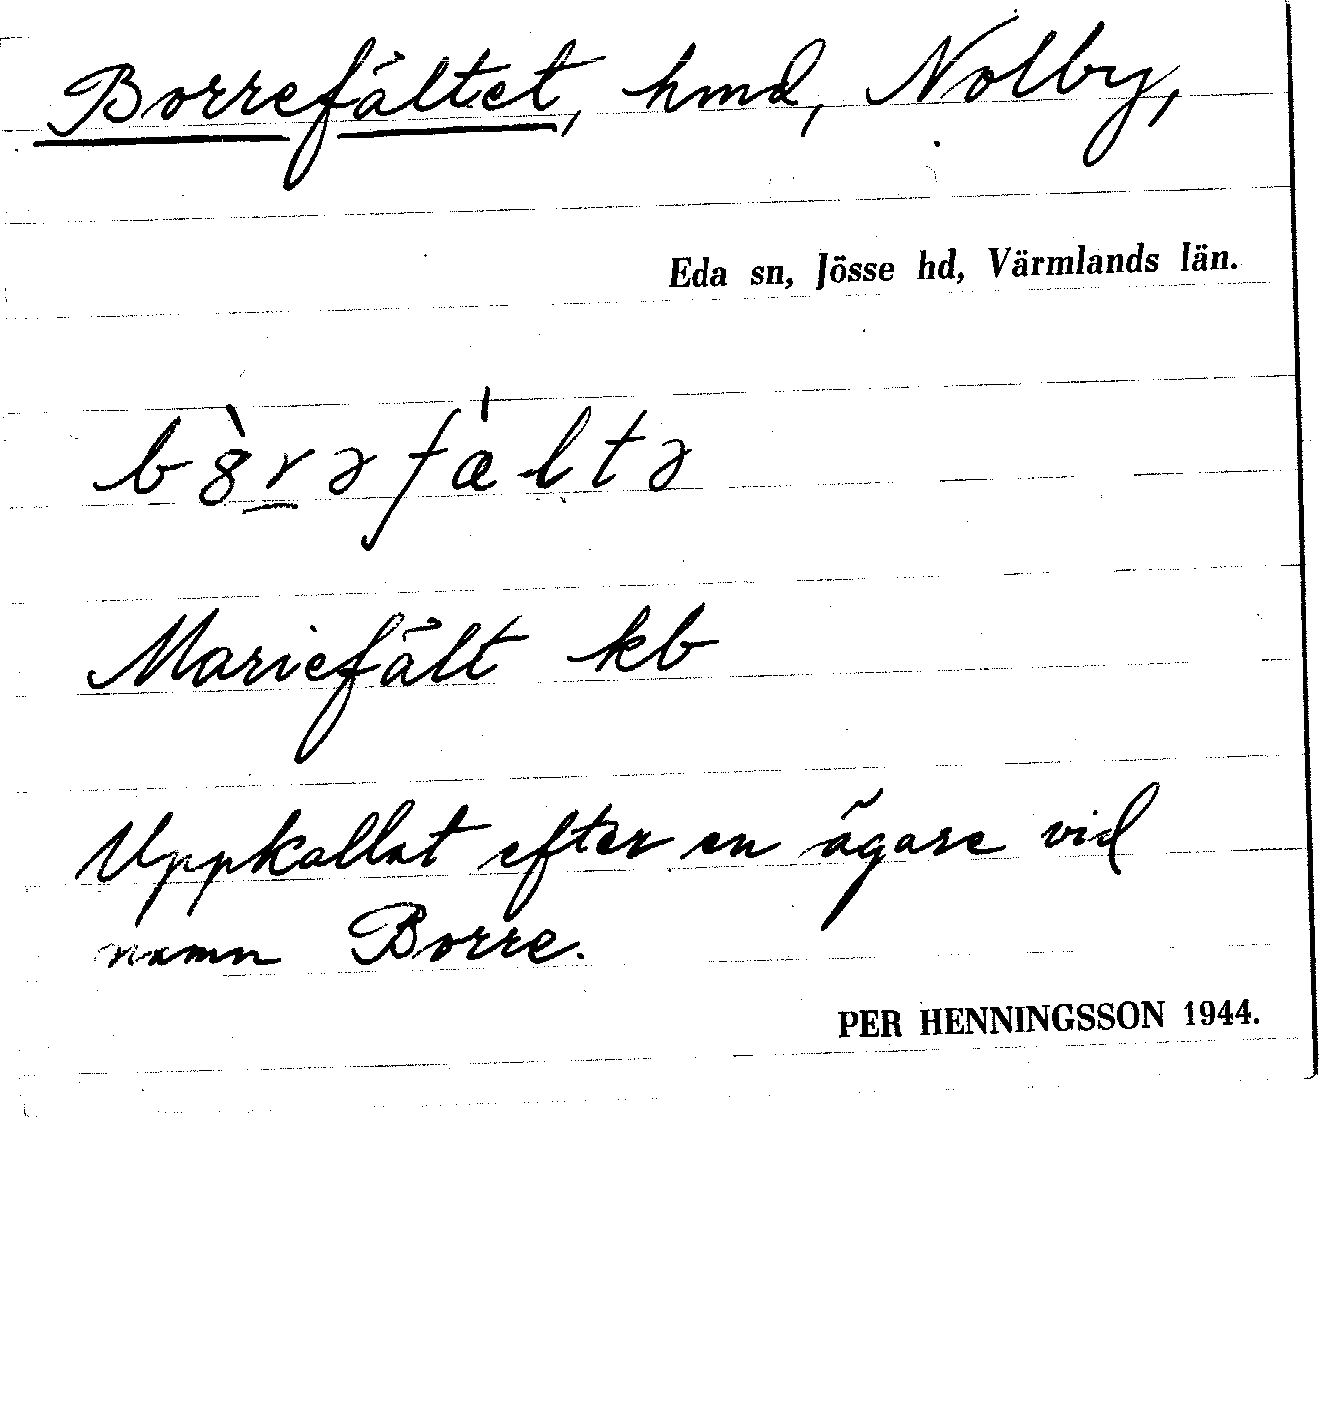 Borrefältet, hmd, Nolby,
Eda sn, Jösse hd, Värmlands län.
b8̀rəfæ̍ltə
Mariefält kb
Uppkallat efter en ägare vid
namn Borre.
PER HENNINGSSON 1944.